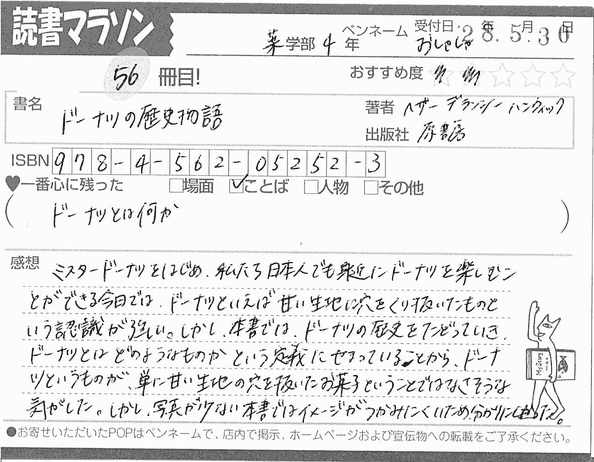 読書マラソン
薬学部 4年
ペンネーム おしゃしゃ
受付日 28.5.30
年 月 日
56 冊目!
おすすめ度 ☆☆☆☆☆
書名
ドーナツの歴史物語
著者 ヘザー デランシー ハンウィック
出版社 原書房
ISBN 978-4-562-05252-3
♥一番心に残った □場面 ☑ことば □人物 □その他
( ドーナツとは何か )
感想
ミスタードーナツをはじめ、私たち日本人でも身近にドーナツを楽しむこ
とができる今日では、ドーナツといえば甘い生地に穴をくり抜いたものと
いう認識が強い。しかし、本書では、ドーナツの歴史をたどっていき、
ドーナツとはどのようなものかという定義にせまっていることから、ドーナ
ツというものが、単に甘い生地の穴を抜いたお菓子ということではなさそうな
気がした。しかし、写真が少ない本書ではイメージがつかみにくいため分かりにくかった。
●お寄せいただいたPOPはペンネームで、店内で掲示、ホームページおよび宣伝物への転載をご了承ください。